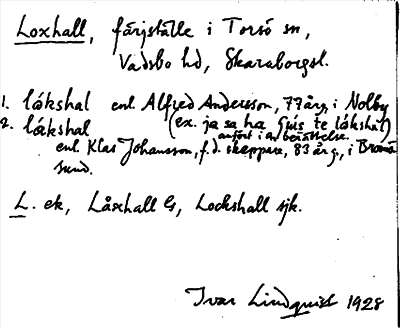 Loxhall, färjställe i Torsö sn,
Vadsbo hd, Skaraborgsl.
1. låkshal enl. Alfred Andersson, 77 årg, i Nolby
2. låkshal (ex. ja sa ha te låkshal)
anfört i en berättelse.
enl. Klas Johansson, f.d. skeppare, 83 årg, i Bromö
sund.
L. ek, Låxhall G, Lockshall sjk.
Ivar Lindquist 1928